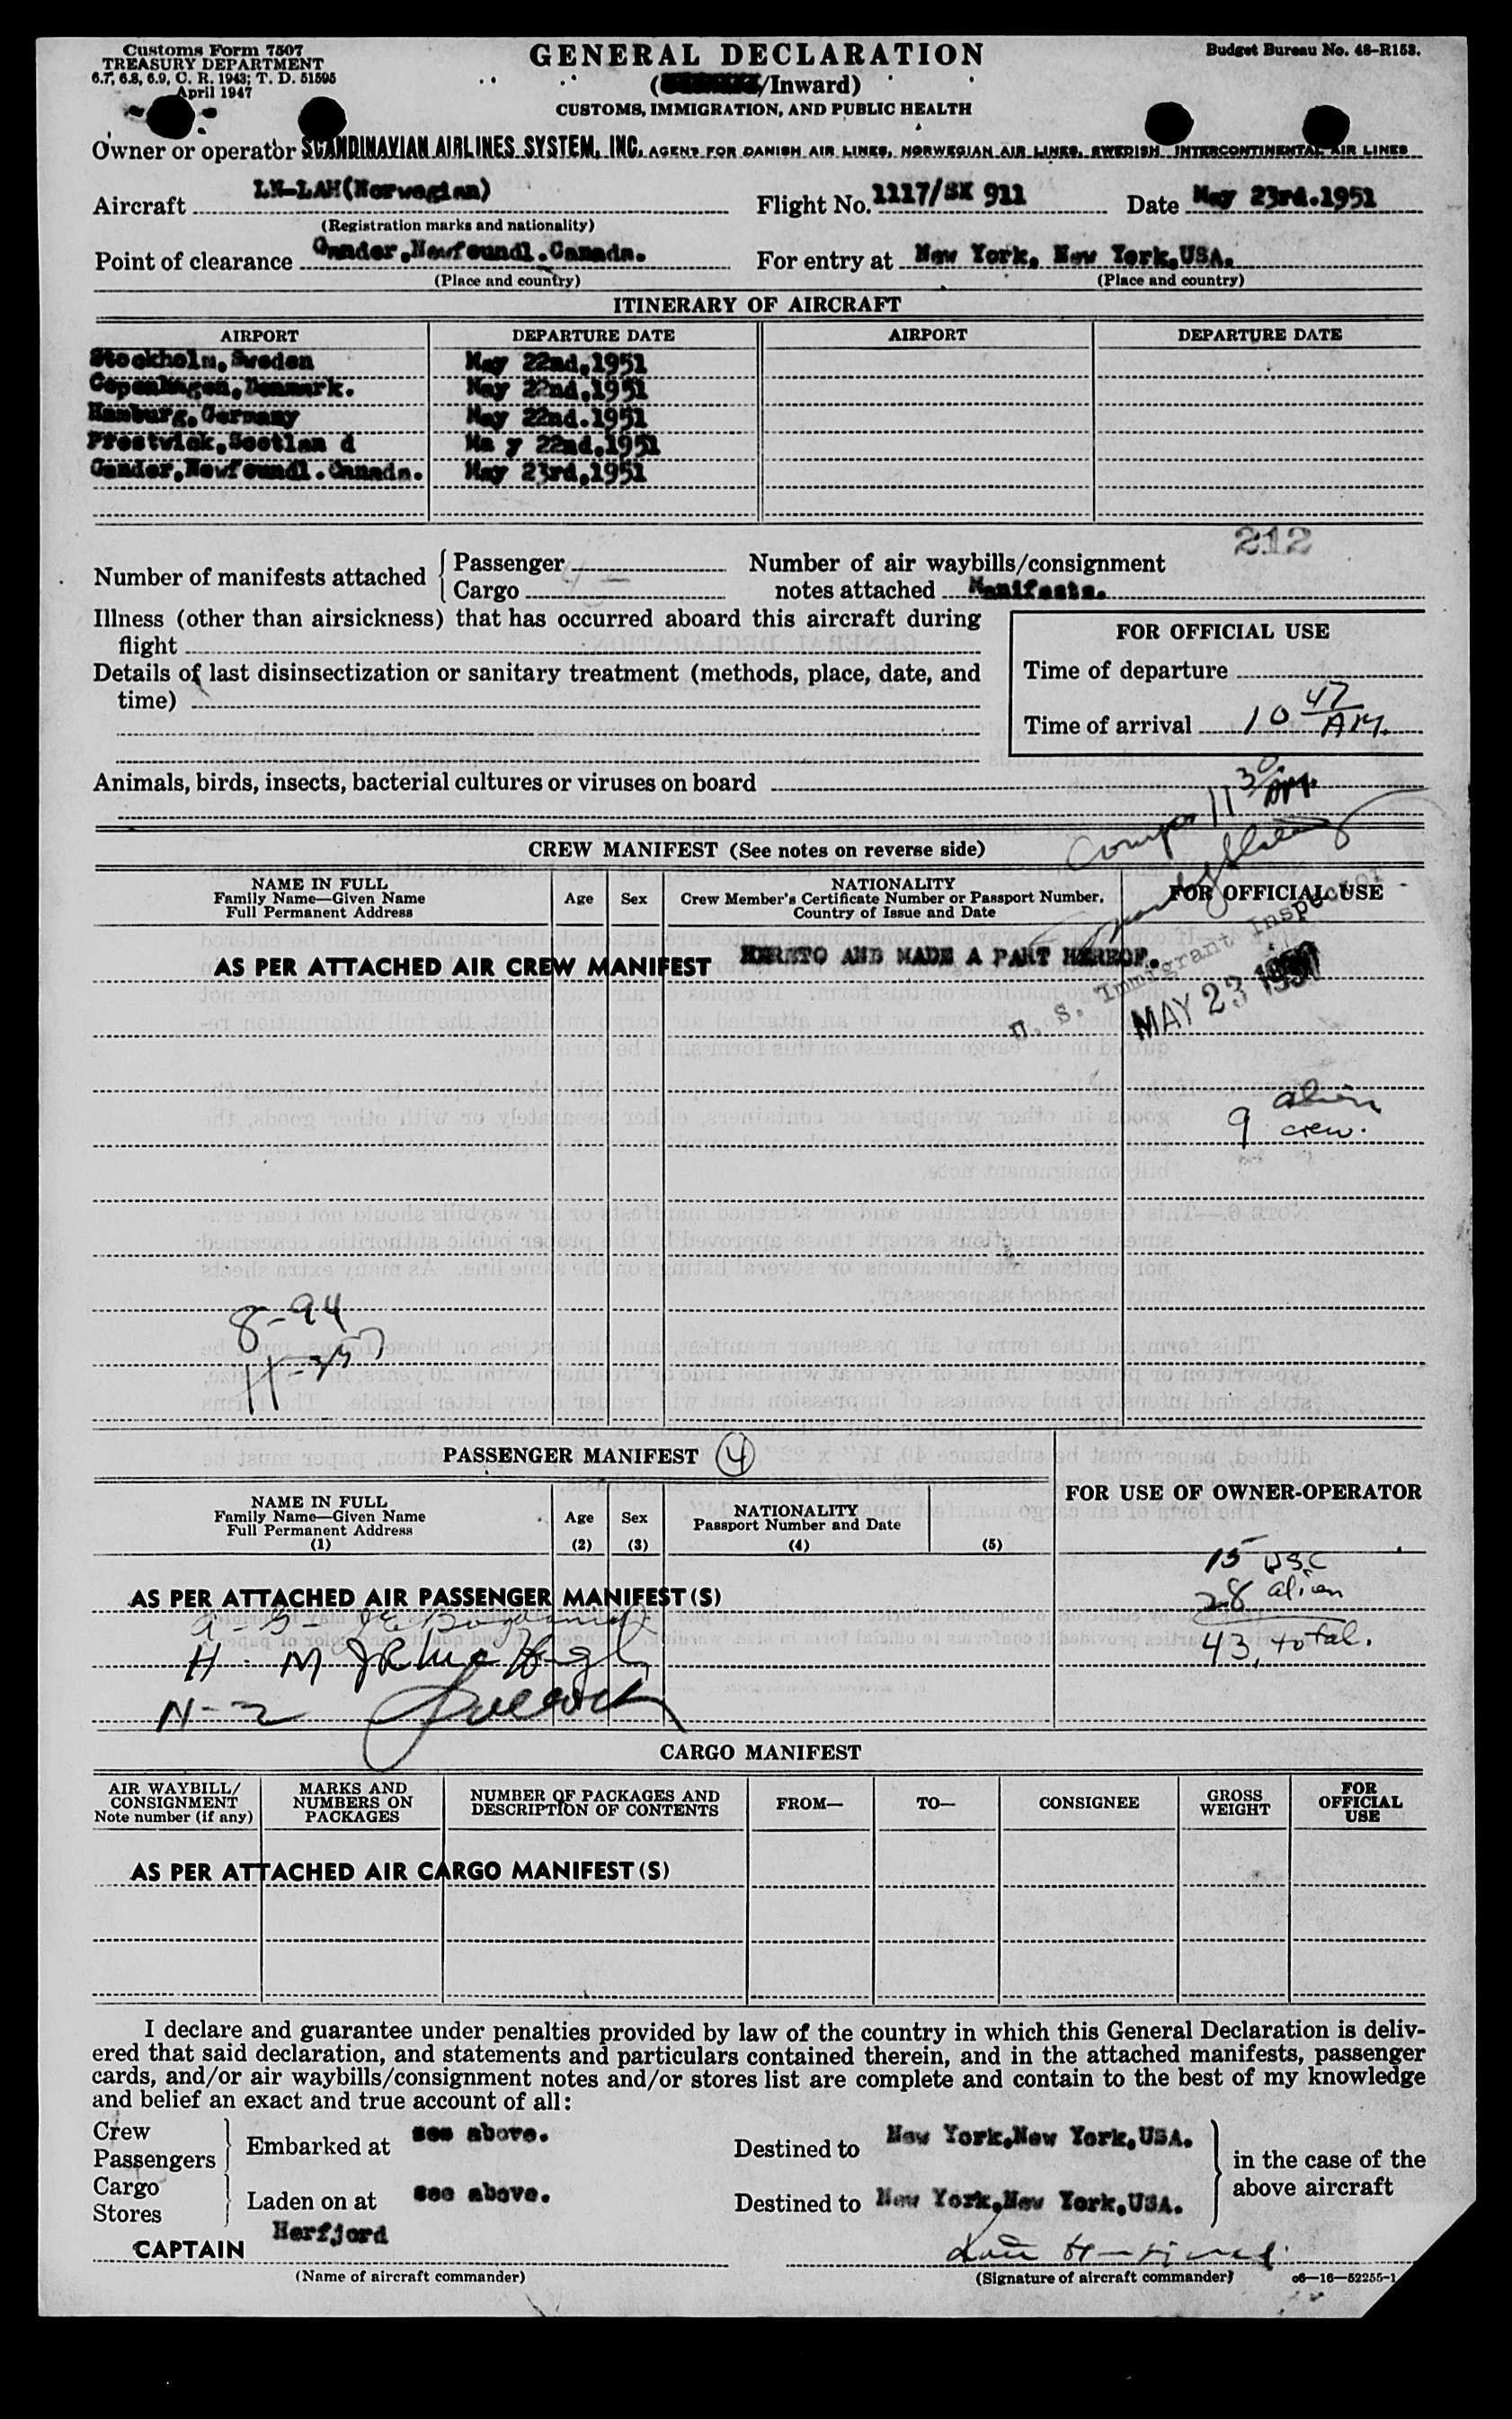 Customs Form 7507
TREASURY DEPARTMENT
6.7, 6.8, 6.9, C. R. 1943; T. D. 51595
April 1947
GENERAL DECLARATION
( /Inward)
CUSTOMS, IMMIGRATION, AND PUBLIC HEALTH
Budget Bureau No. 48-R153.
Owner or operator SCANDINAVIAN AIRLINES SYSTEM, INC. AGENT FOR DANISH AIR LINES, NORWEGIAN AIR LINES, SWEDISH INTERCONTINENTAL AIR LINES
Aircraft LN-LAH(Norwegian) Flight No. 1117/SK 911 Date May 23rd.1951
(Registration marks and nationality)
Point of clearance Gander,Newfoundl.Canada. For entry at New York, New York,USA.
(Place and country) (Place and country)
ITINERARY OF AIRCRAFT
AIRPORT DEPARTURE DATE AIRPORT DEPARTURE DATE
Stockholm,Sweden May 22nd,1951
Copenhagen,Denmark. May 22nd,1951
Hamburg,Germany May 22nd.1951
Prestwick,Scotlan d Ma y 22nd,1951
Gander,Newfoundl.Canada. May 23rd,1951
212
Number of manifests attached { Passenger
Cargo
Number of air waybills/consignment
notes attached Manifests.
Illness (other than airsickness) that has occurred aboard this aircraft during
flight
Details of last disinsectization or sanitary treatment (methods, place, date, and
time)
FOR OFFICIAL USE
Time of departure
Time of arrival 10 47 AM.
Animals, birds, insects, bacterial cultures or viruses on board
11 30 AM.
CREW MANIFEST (See notes on reverse side)
NAME IN FULL
Family Name—Given Name
Full Permanent Address
Age Sex
NATIONALITY
Crew Member's Certificate Number or Passport Number,
Country of Issue and Date
FOR OFFICIAL USE
AS PER ATTACHED AIR CREW MANIFEST HERETO AND MADE A PART HEREOF.
U. S. Immigrant Inspector
MAY 23 1951
9 alien
crew.
8-94
PASSENGER MANIFEST 4
NAME IN FULL
Family Name—Given Name
Full Permanent Address
(1)
Age
(2)
Sex
(3)
NATIONALITY
Passport Number and Date
(4)
(5)
FOR USE OF OWNER-OPERATOR
15 USC
28 alien
43, total.
AS PER ATTACHED AIR PASSENGER MANIFEST(S)
N-2
CARGO MANIFEST
AIR WAYBILL/
CONSIGNMENT
Note number (if any)
MARKS AND
NUMBERS ON
PACKAGES
NUMBER OF PACKAGES AND
DESCRIPTION OF CONTENTS
FROM—
TO—
CONSIGNEE
GROSS
WEIGHT
FOR
OFFICIAL
USE
AS PER ATTACHED AIR CARGO MANIFEST(S)
I declare and guarantee under penalties provided by law of the country in which this General Declaration is deliv-
ered that said declaration, and statements and particulars contained therein, and in the attached manifests, passenger
cards, and/or air waybills/consignment notes and/or stores list are complete and contain to the best of my knowledge
and belief an exact and true account of all:
Crew
Passengers } Embarked at see above. Destined to New York,New York,USA.
Cargo
Stores } Laden on at see above. Destined to New York,New York,USA.
in the case of the
above aircraft
CAPTAIN Herfjord
(Name of aircraft commander) (Signature of aircraft commander) 06—16—52255-1